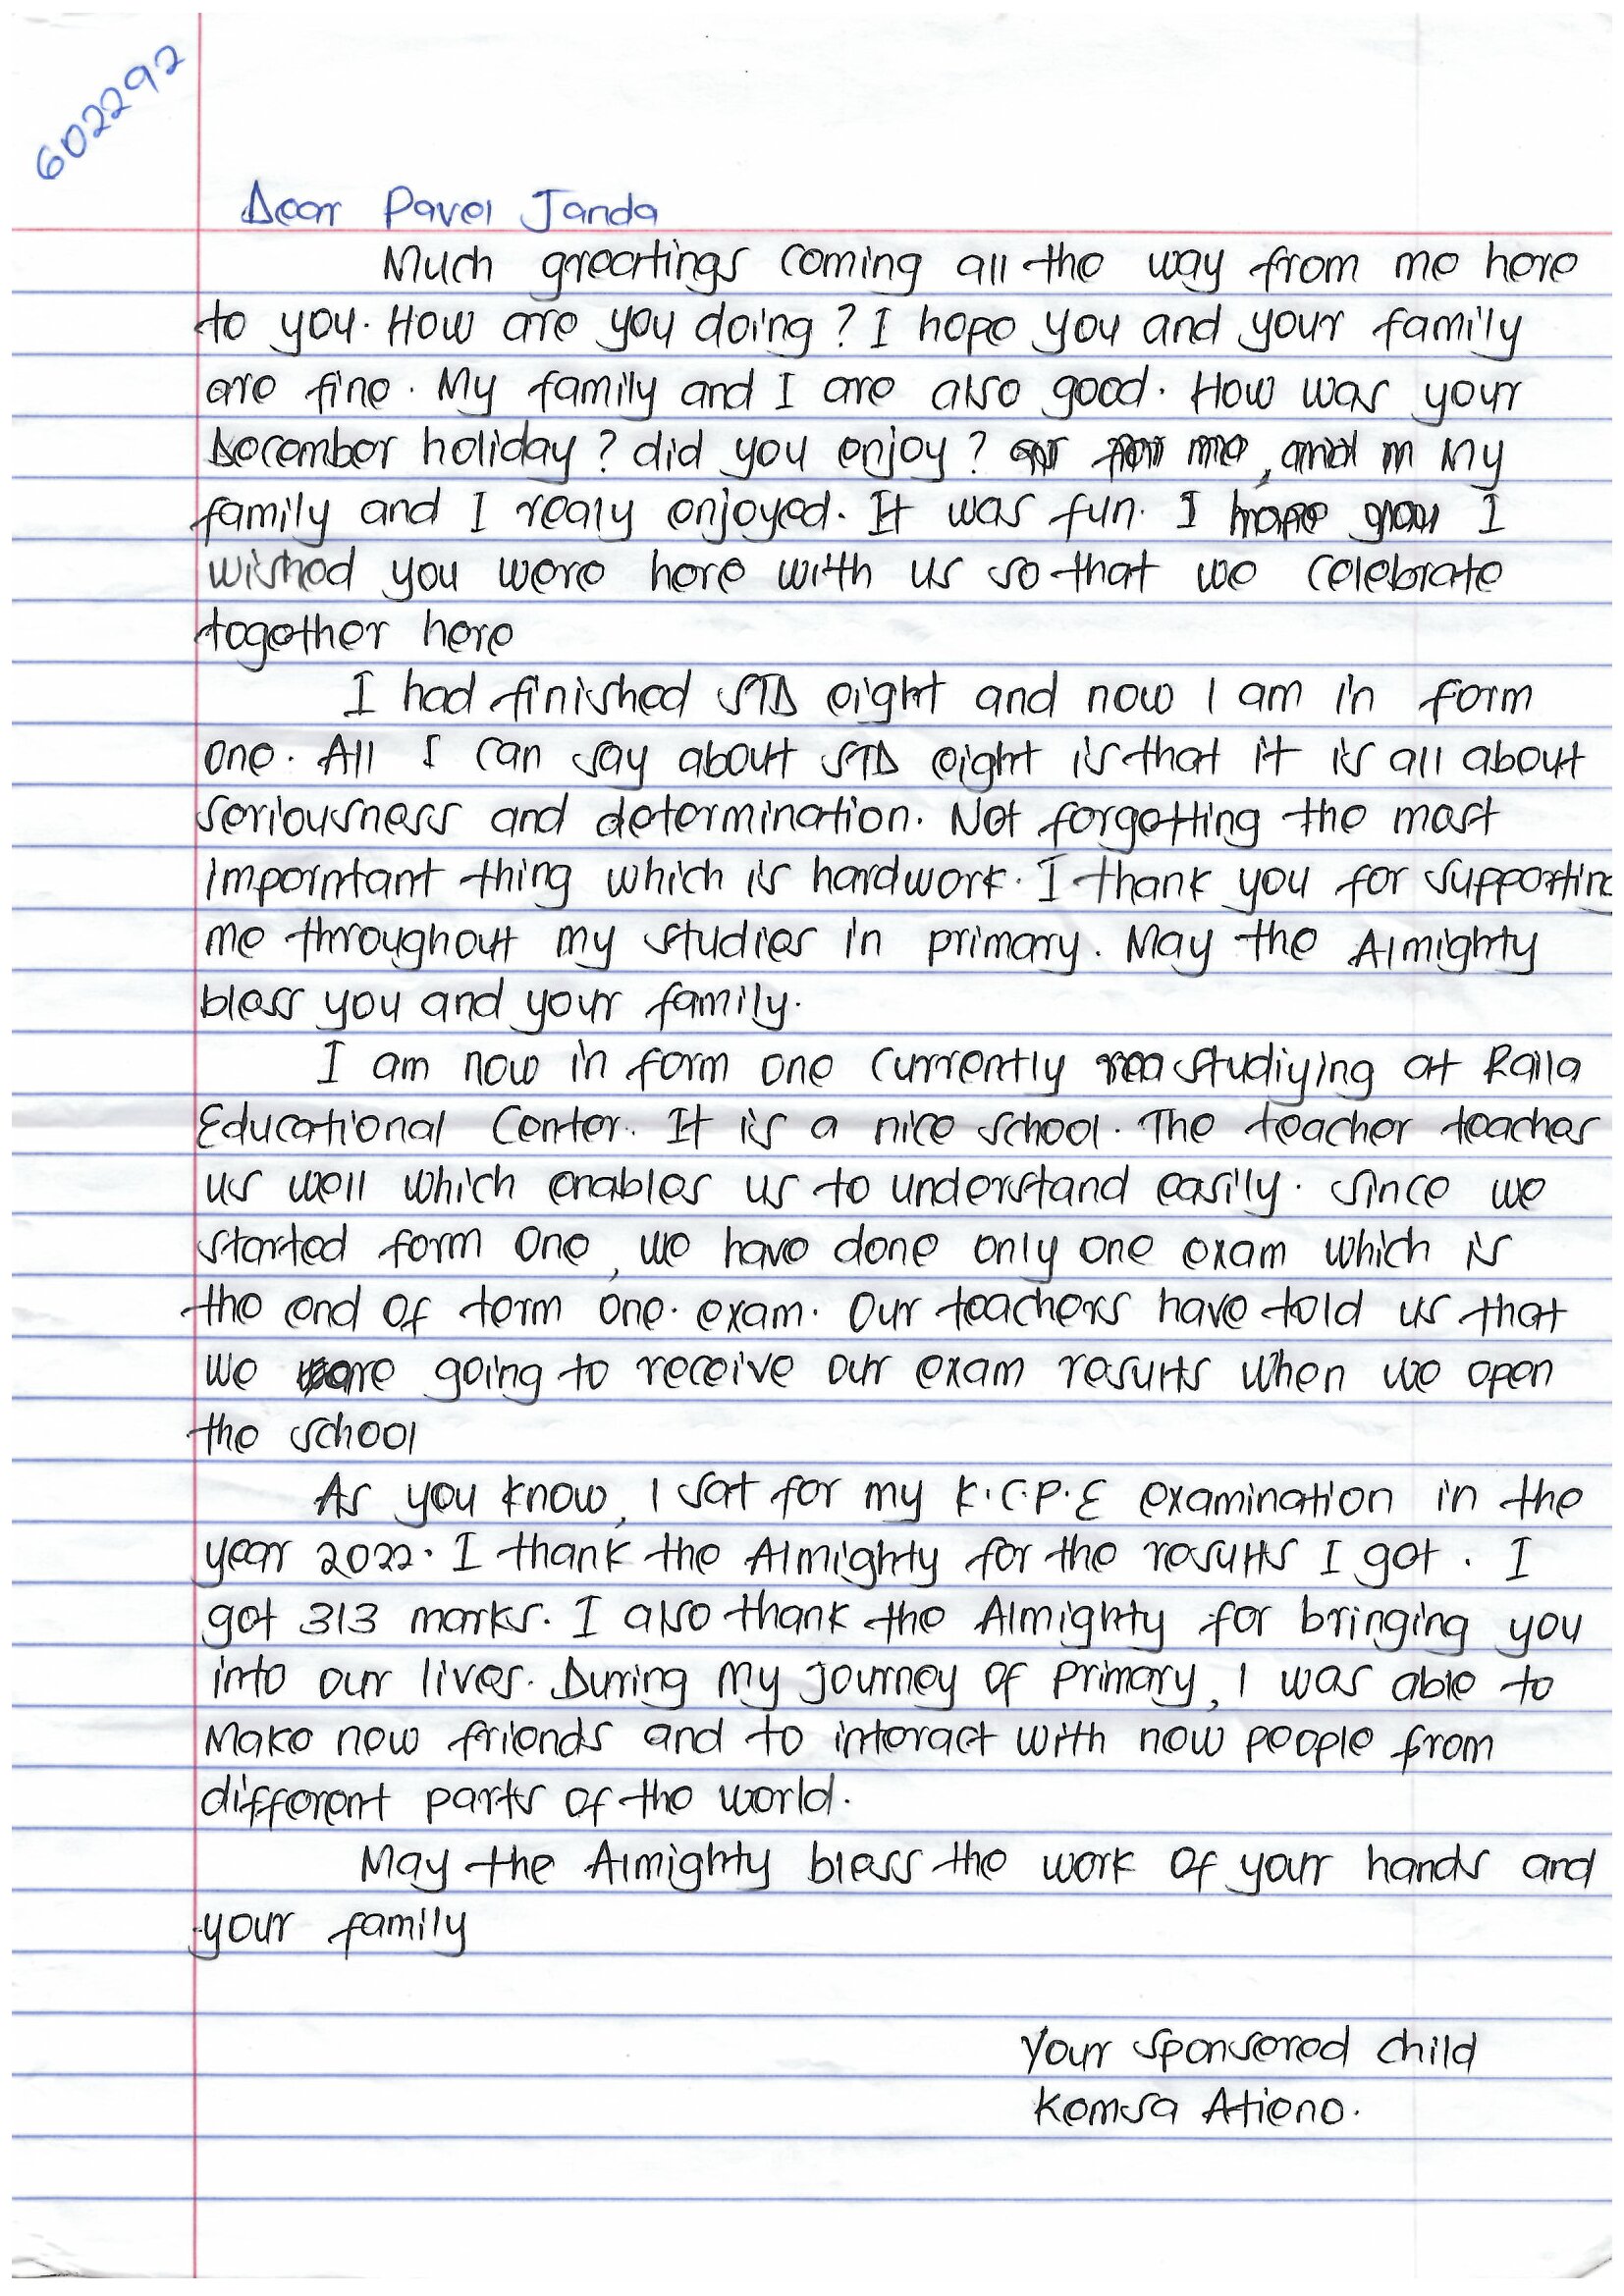 602292
Dear Pavel Janda
Much greatings coming all the way from me here
to you. How are you doing? I hope you and your family
are fine. My family and I are also good. How was your
December holiday? did you enjoy? me, and My
family and I realy enjoyed. It was fun. I hope I
wished you were here with us so that we celebrate
together here
I had finished STD eight and now I am in form
one. All I can say about STD eight is that it is all about
seriousness and determination. Not forgetting the most
imporntant thing which is hardwork. I thank you for supporting
me throughout my studies in primary. May the Almighty
bless you and your family.
I am now in form one currently studiying at Raila
Educational Center. It is a nice school. The teacher teaches
us well which enables us to understand easily. Since we
started form one, we have done only one exam which is
the end of term one. exam. Our teachers have told us that
we are going to receive our exam results when we open
the school
As you know, I sat for my K.C.P.E examination in the
year 2022. I thank the Almighty for the results I got. I
got 313 marks. I also thank the Almighty for bringing you
into our lives. During my journey of primary, I was able to
Make new friends and to interact with new people from
different parts of the world.
May the Almighty bless the work of your hands and
your family
Your sponsored child
Kemsa Atieno.